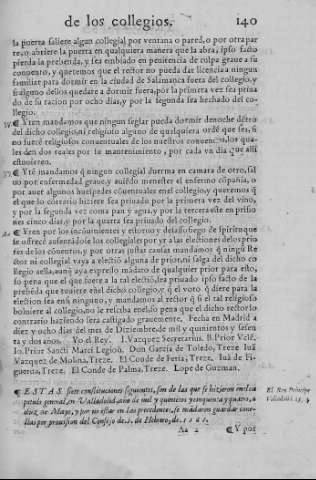 de los collegios. 140
la puerta saliere algun collegial por ventana o pared, o por otra par
te, o abriere la puerta en qualquiera manera que la abra, ipso facto
pierda la prebenda, y sea embiado en penitencia de culpa graue a su
conuento, y queremos que el rector no pueda dar licencia a ningun
familiar para dormir en la ciudad de Salamanca fuera del collegio, y
si alguno dellos quedare a dormir fuera, por la primera vez sea priua
do de su racion por ocho dias, y por la segunda sea hechado del co-
llegio.
¶ Yten mandamos que ningun seglar pueda dormir denoche dẽtro
del dicho collegio, ni religioso alguno de qualquiera ordẽ que sea, si
no fuere religiosos conuentuales de los nuestros conuentos, los qua-
les den dos reales por su mantenimiento, por cada vn dia que alli
estuuieren.
¶ Ytẽ mandamos q̃ ningun collegial duerma en camara de otro, si
no por enfermedad graue, y auiẽdo menester el enfermo cõpañia, o
por auer algunos huespedes cõuentuales en el collegio, y queremos q̃
el que lo cõtrario hiziere sea priuado por la primera vez del vino,
y por la segunda vez coma pan y agua, y por la tercera este en prisio
nes cinco dias, y por la quarta sea priuado del collegio.
¶ Yten por los incõuinientes y estoruo y desassosiego de spiritu que
se ofrece ausentãdose los collegiales por yr a las electiones de los prio
res de los cõuentos, y por otras justas causas mandamos q̃ ningũ Re
ctor ni collegial vaya a electiõ alguna de prior, ni salga del dicho co
llegio a ella, aunq̃ aya expresso mãdato de qualquier prior para esto,
so pena que el que fuere a la tal electiõ, sea priuado ipso facto de la
prebẽda que tuuiere en el dicho collegio, y q̃ el voto q̃ diere para la
election sea en si ninguno, y mandamos al rector q̃ si el tal religioso
boluiere al collegio, no le reciba en el so pena que el dicho rector lo
contrario haziendo sera castigado grauemente. Fecha en Madrid a
diez y ocho dias del mes de Diziembre, de mil y quinientos y sesen
ta y dos años. Yo el Rey. I. Vazquez Secretarius. B. Prior Velẽ.
Io. Prior Sancti Marci Legioñ. Don Garcia de Toledo, Treze Iuã
Vazquez de Molina, Treze. El Conde de Feria, Treze. Iuã de Fi-
gueroa, Treze. El Conde de Palma, Treze. Lope de Guzman.
¶ ESTAS siete constituciones siguientes, son de las que se hizieron en el ca
pitulo general, en Valladolid, año de mil y quinientos y cinquenta y quatro, a
diez de Mayo, y por no estar en las precedentes, se mãdaron guardar con e-
llas por prouision del Consejo de
El Rey Principe
Valladolid
Aa 2 ¶ Y por